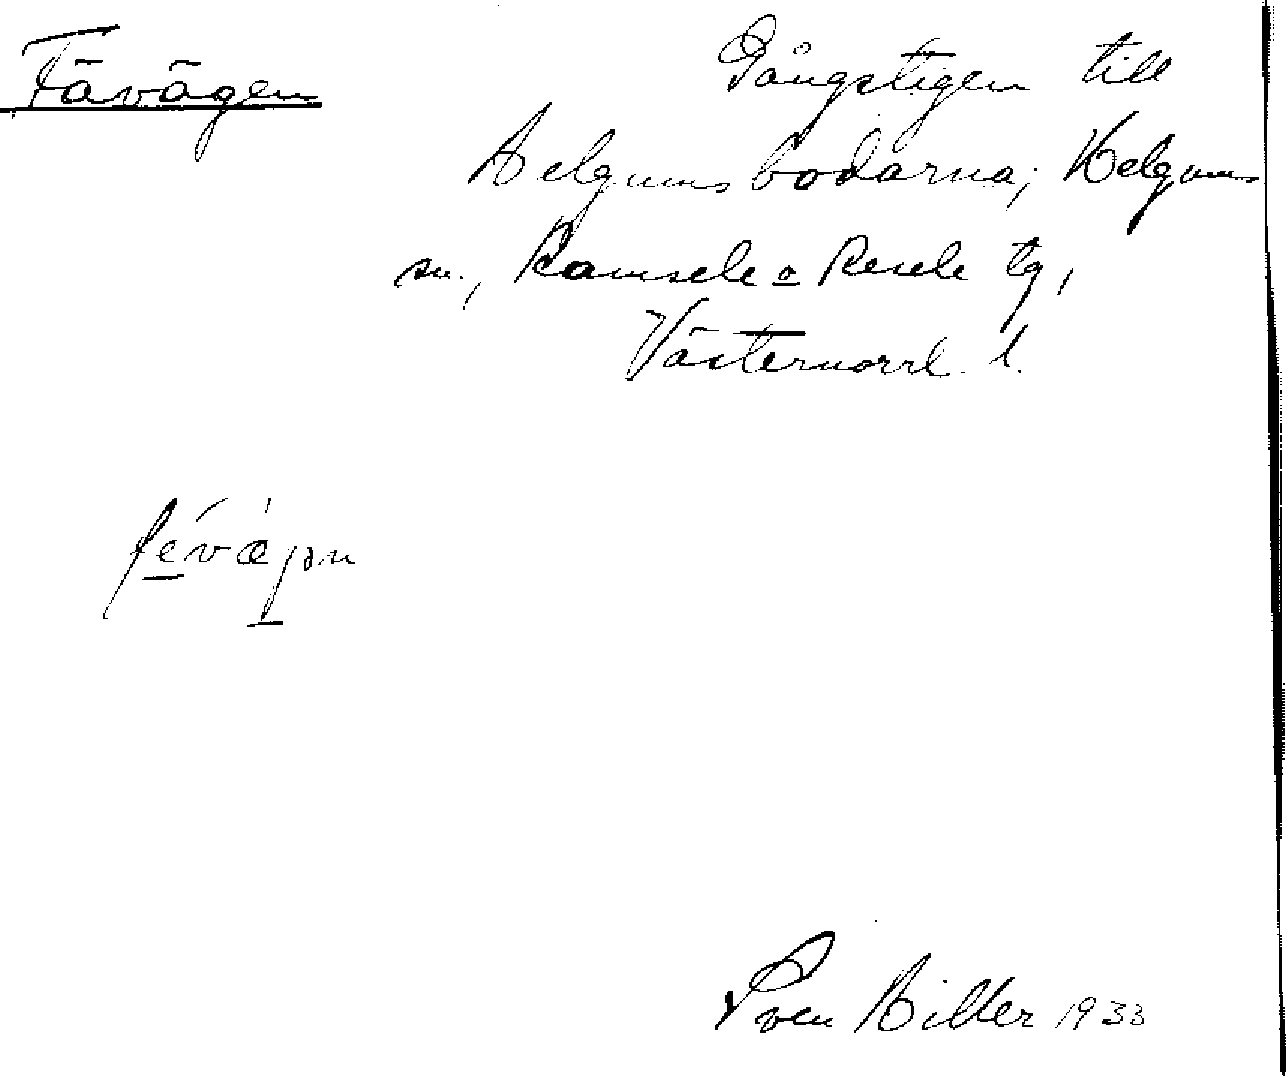 Fävägen
Gångstigen till
Helgumsbodarna; Helgums
sn., Ramsele o Resele tg,
Västernorrl. l.
févǽgən
Sven Hiller 1933